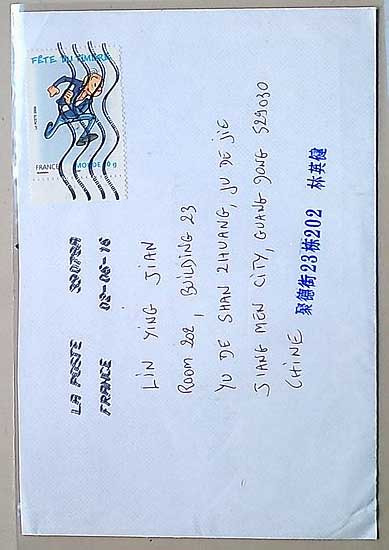 FÊTE DU TIMBRE
FRANCE
MONDE 20 g
LA POSTE 39078A
FRANCE 03-06-16
LIN YING JIAN
ROOM 202, BUILDING 23
YU DE SHAN ZHUANG, JU DE JIE
JIANG MEN CITY, GUANG DONG 529030
CHINE
聚德街23栋202 林英健